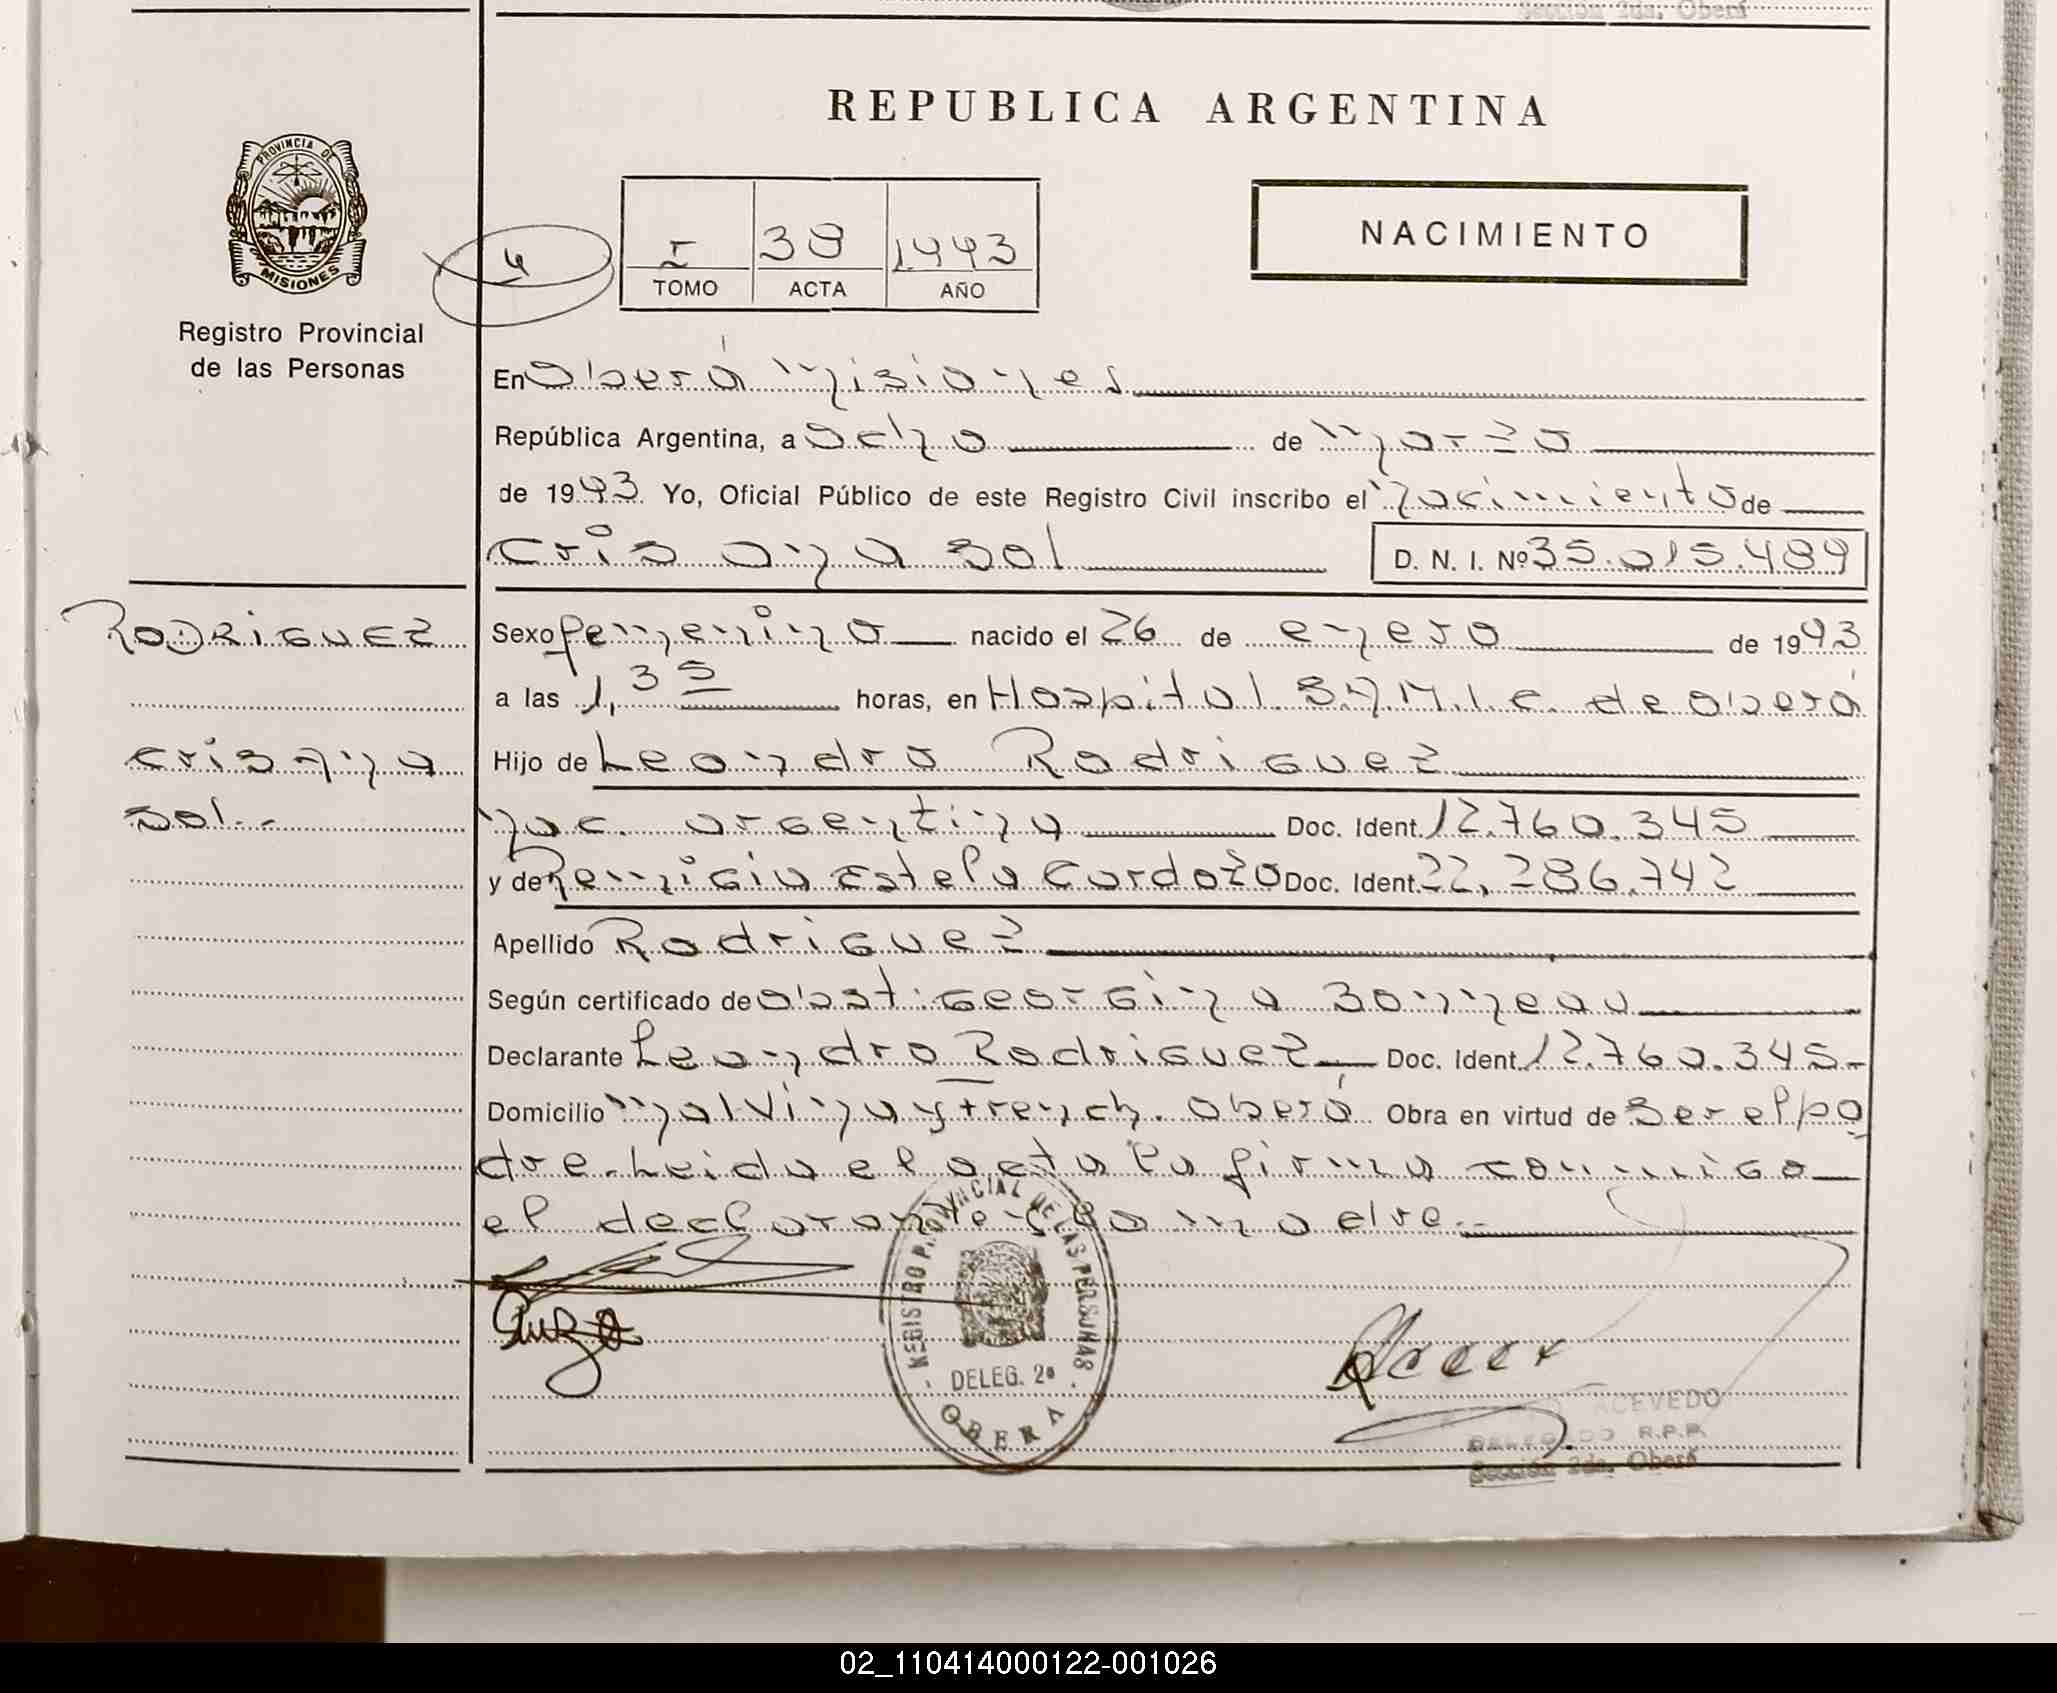 Sección 2da. Oberá
REPUBLICA ARGENTINA
PROVINCIA DE
MISIONES
Registro Provincial
de las Personas
4
I 38 1993
TOMO ACTA AÑO
NACIMIENTO
En Oberá Misiones
República Argentina, a ocho de marzo
de 1993 Yo, Oficial Público de este Registro Civil inscribo el nacimiento de
cris ana sol D. N. I. Nº 35.015.489
RODRIGUEZ
cris Ana
sol.-
Sexo femenino nacido el 26 de enero de 1993
a las 1,35 horas, en Hospital S.A.M.I.C. de Oberá
Hijo de Leandro Rodriguez
nac. argentina Doc. Ident. 12.760.345
y de Remigia Estela Cardozo Doc. Ident. 22.286.742
Apellido Rodriguez
Según certificado de obst. Georgina Bonneau
Declarante Leandro Rodriguez Doc. Ident. 12.760.345-
Domicilio Malvina y French. Oberá Obra en virtud de ser el pa
dre. Leida el acta la firma conmigo
el declarante y la madre.-
REGISTRO PROVINCIAL DE LAS PERSONAS
DELEG. 2ª
OBERA
ACEVEDO
DELEGADO R.P.P.
Sección 2da. Oberá
02_110414000122-001026